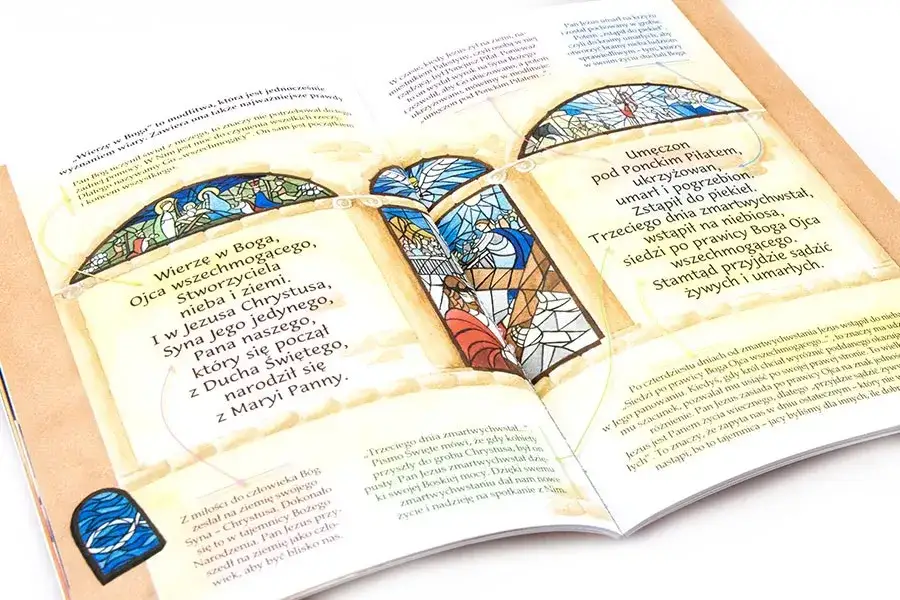 „Wierzę w Boga" to modlitwa, która jest jednocześnie
wyznaniem wiary. Zawiera ona także najważniejsze prawdy
Pan Bóg istniał stał z niczego, to znaczy nie potrzebował do tego
żadnej pomocy. W Nim jest moc do czynienia wszelkich rzeczy.
Dlatego nazywamy Go „wszechmogący". On sam jest początkiem
i końcem wszystkiego.
Wierzę w Boga,
Ojca wszechmogącego,
Stworzyciela
nieba i ziemi.
I w Jezusa Chrystusa,
Syna Jego jedynego,
Pana naszego,
który się począł
z Ducha Świętego,
narodził się
z Maryi Panny.
Z miłości do człowieka Bóg
zesłał na ziemię swojego
Syna – Chrystusa. Dokonało
się to w tajemnicy Bożego
Narodzenia. Pan Jezus przy-
szedł na ziemię jako czło-
wiek, aby być blisko nas.
„Trzeciego dnia zmartwychwstał..."
Pismo Święte mówi, że gdy kobiety
przyszły do grobu Chrystusa, był on
pusty. Pan Jezus zmartwychwstał dzię-
ki swojej Boskiej mocy. Dzięki swemu
zmartwychwstaniu dał nam nowe
życie i nadzieję na spotkanie z Nim.
W czasie, kiedy Jezus żył na ziemi, na-
miestnikiem Palestyny, czyli osobą w niej
rządzącą, był Poncjusz Piłat. Ponieważ
on wydał wyrok na Syna Bożego
i pozwolił, aby Go umęczono, a potem
ukrzyżowano, mówimy w modlitwie:
„umęczon pod Ponckim Piłatem...".
Pan Jezus umarł na krzyżu
i został pochowany w grobie.
Potem „zstąpił do piekieł",
czyli do krainy umarłych, aby
otworzyć bramy nieba ludziom
sprawiedliwym – tym, którzy
w swoim życiu słuchali Boga.
Umęczon
pod Ponckim Piłatem,
ukrzyżowan,
umarł i pogrzebion.
Zstąpił do piekieł.
Trzeciego dnia zmartwychwstał,
wstąpił na niebiosa,
siedzi po prawicy Boga Ojca
wszechmogącego.
Stamtąd przyjdzie sądzić
żywych i umarłych.
Po czterdziestu dniach od zmartwychwstania Jezus wstąpił do nieba
„Siedzi po prawicy Boga Ojca wszechmogącego" – to znaczy ma udział
w Jego panowaniu. Kiedyś, gdy król chciał wyróżnić poddanego okazaniem
mu szacunek, pozwalał mu usiąść po swojej prawej stronie. Towiel
różnienie. Pan Jezus zasiada po prawicy Ojca na znak
Jezus jest Panem życia wiecznego, dlatego „przyjdzie sądzić żywych
łych". To znaczy, że zapyta nas w dniu ostatecznym – który nie
nastąpi, bo to tajemnica – jacy byliśmy dla innych, ile dobra